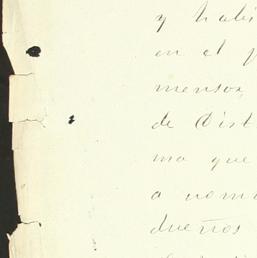 y habi
en el p
mensor,
de Dist
ma que
a nom
dueños